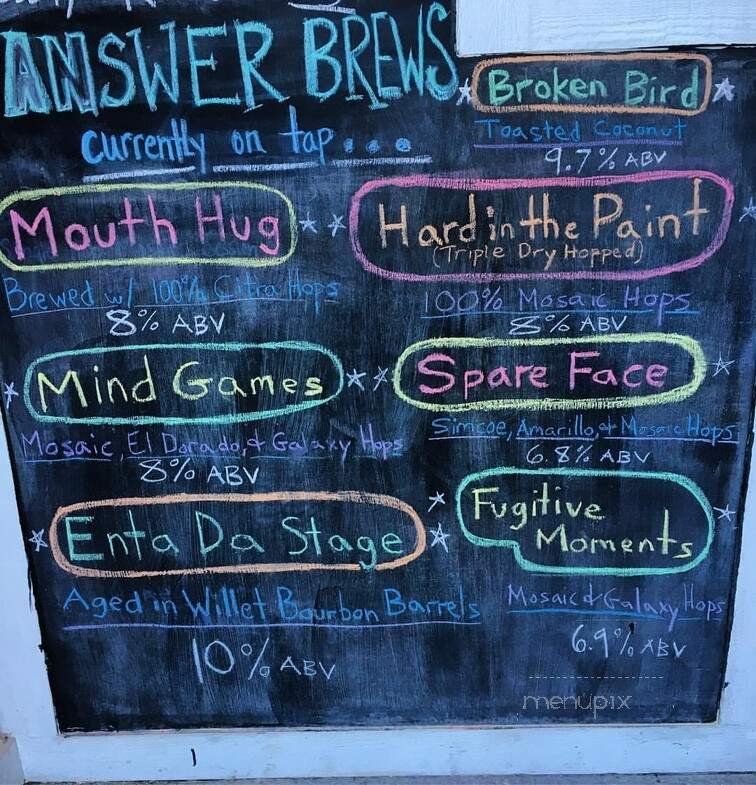 ANSWER BREWS
currently on tap...
Broken Bird
Toasted Coconut
9.7% ABV
Mouth Hug
Brewed w/ 100% Citra Hops
8% ABV
Hard in the Paint
(Triple Dry Hopped)
100% Mosaic Hops
8% ABV
Mind Games
Mosaic, El Dorado, & Galaxy Hops
8% ABV
Spare Face
Simcoe, Amarillo, & Mosaic Hops
6.8% ABV
Enta Da Stage
Aged in Willet Bourbon Barrels
10% ABV
Fugitive
Moments
Mosaic & Galaxy Hops
6.9% ABV
menupix